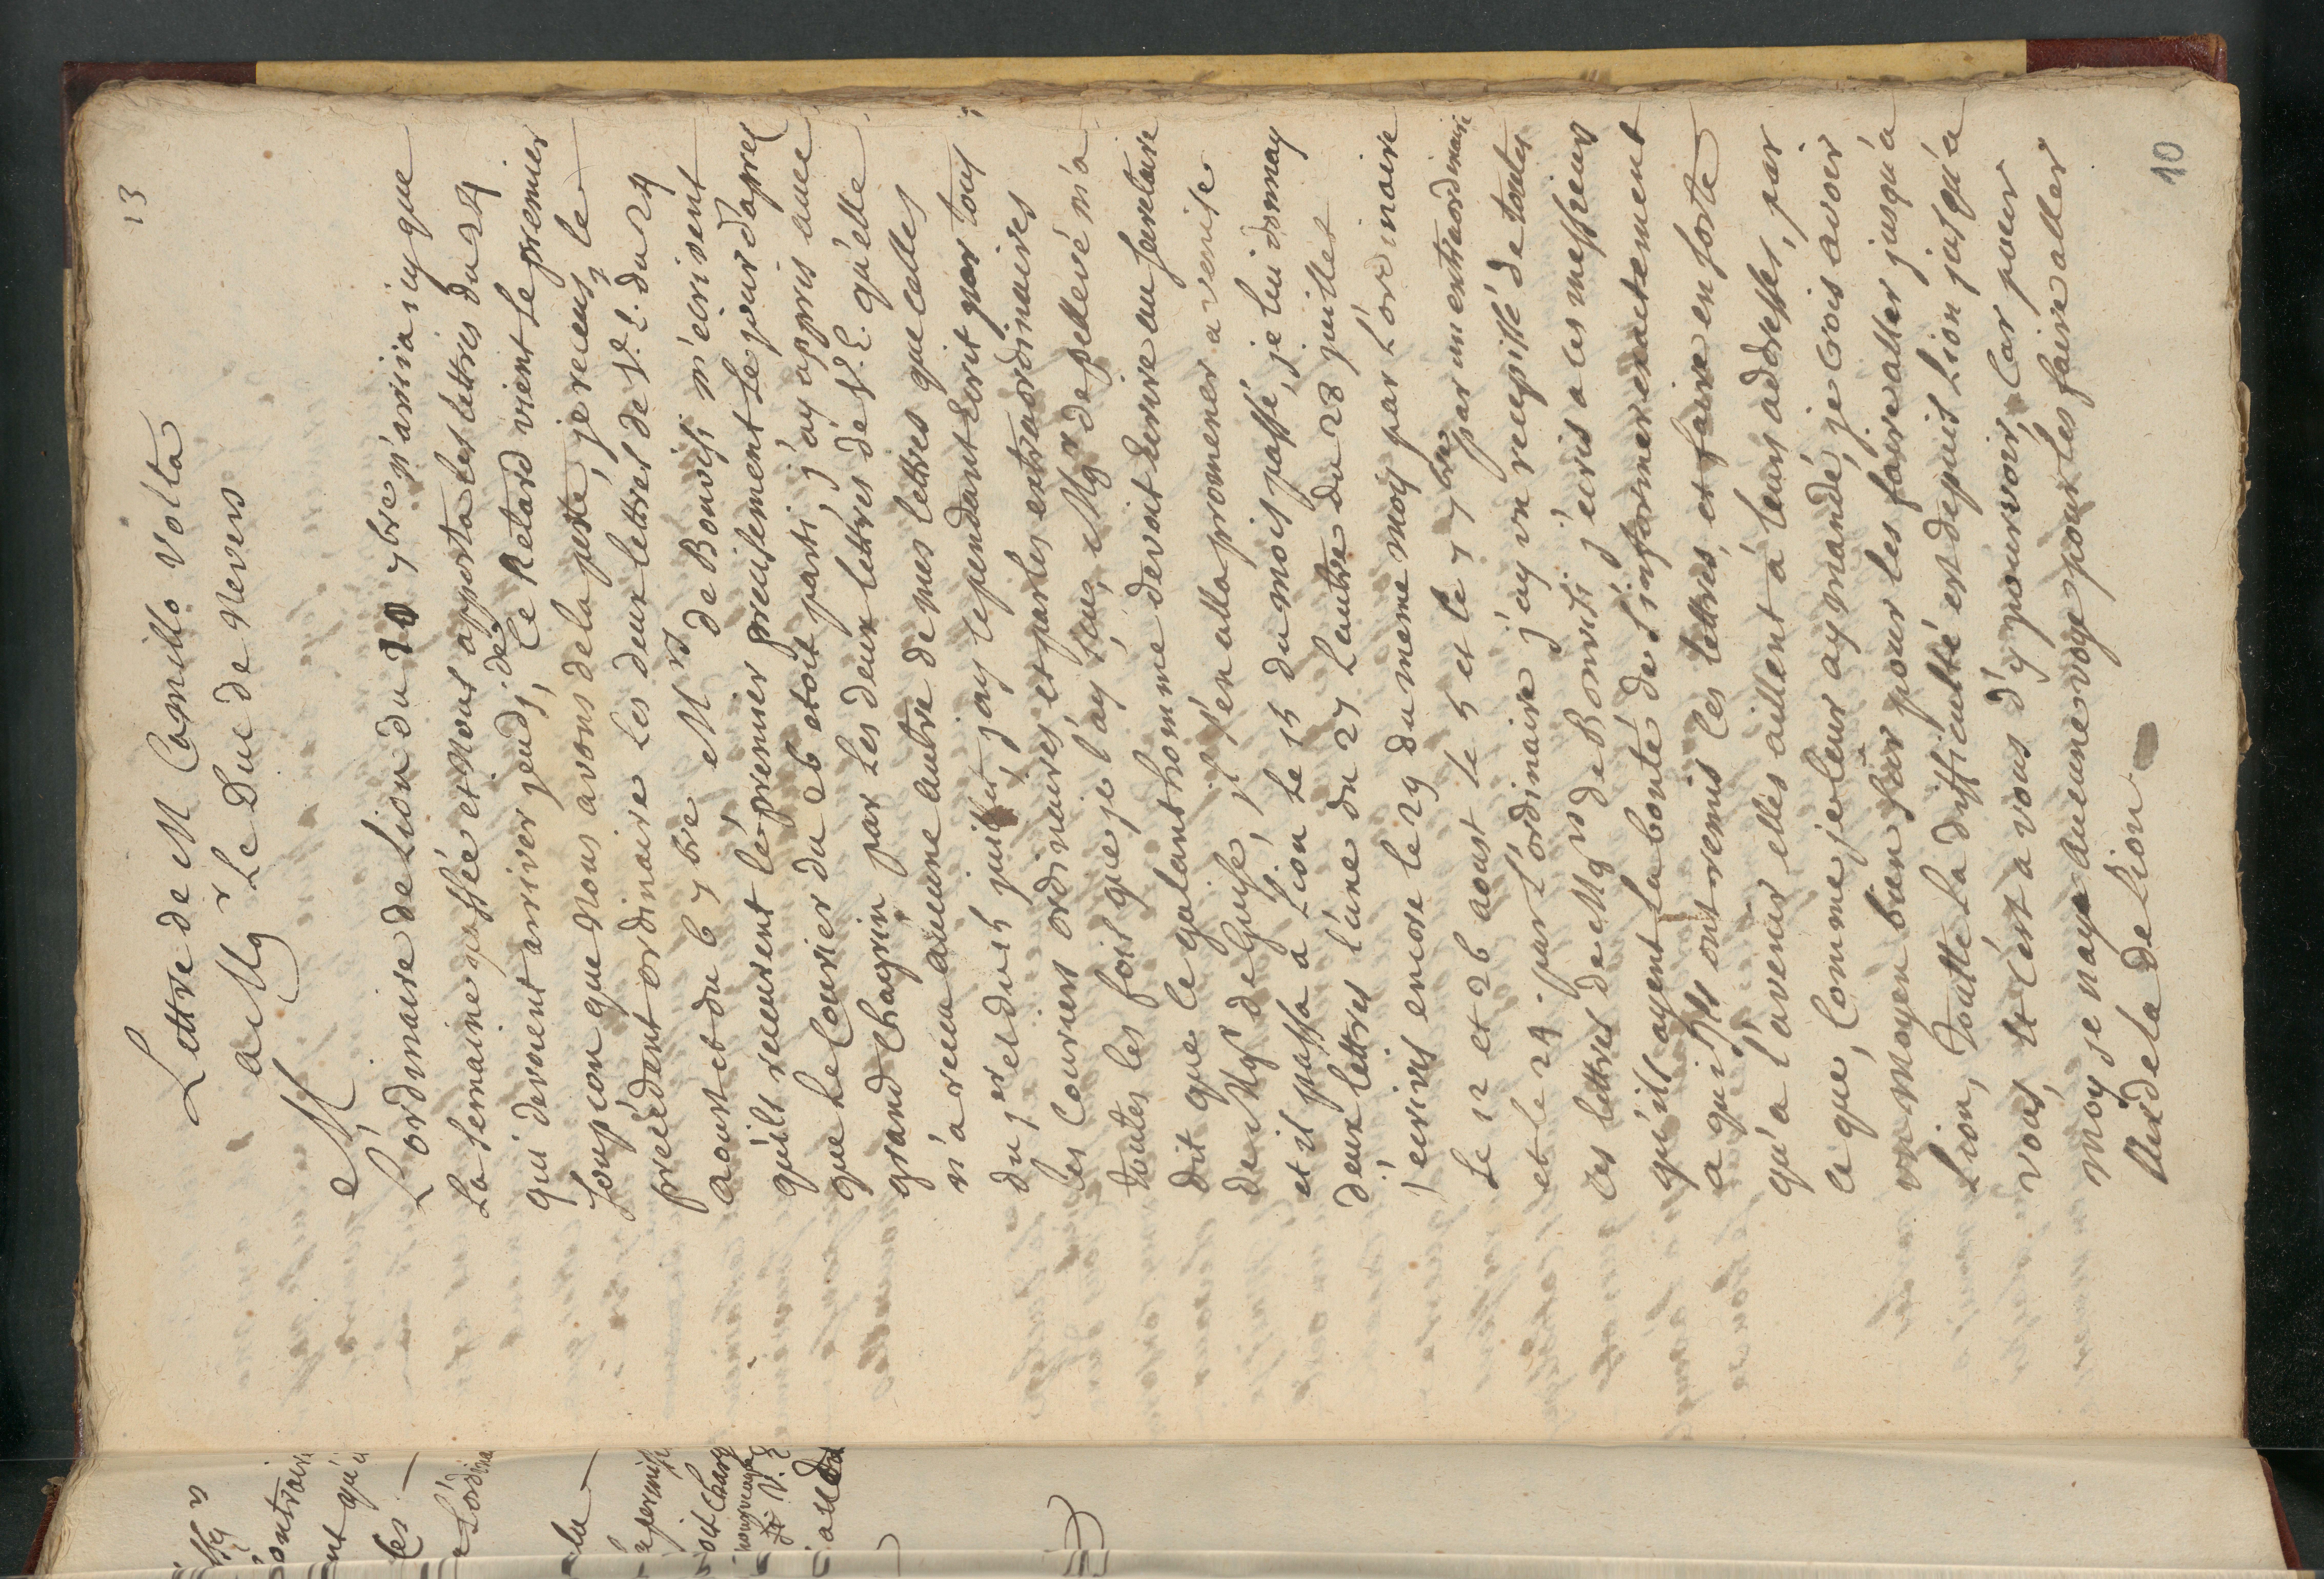 13
Lettre de M Camillo Volta
a Mgr Le Duc de Nevers
M,
L'ordinaire de Lion du 20 7bre n'arriva icy que
La semaine passée et nous apporta les lettres du 24
qui devoient arriver jeudi, ce Retard vient de premier
soupcon que nous avons de la peste, je receus le
précédent ordinaire les deux lettres de V. E. du 24
aoust et du 6 7bre Mrs de Bonvisi m'ecrivent
qu'ils receurent le premier precisement le jour d'apres
que le Courier du 26 etoit parti, j'ay appris avec
grand chagrin par les deux lettres de V. E. qu'elle
n'a receu aucune autre de mes lettres que celles
du 1er et du 15 juillet, j'ay cependant Ecrit par tous
les Couriers ordinaires et par les extraordinaires
toutes les fois que je l'ay sceu, Mgr de pellevé m'a
dit que le galant homme devoit Ecrire au secretaire
de Mgr de Guise, il s'en alla promener a venise
et il passa a Lion le 15 du mois passé, je lui donnay
deux lettres l'une du 27 L'autre du 28 juillet
j'ecrivis encore le 29 du meme mois par L'ordinaire
Le 12 et 26 aoust le 5 et le 7 7bre par un extraordinaire
et le 24 par l'ordinaire j'ay vu recepissé de toutes
ces lettres de Mgrs de Bonvisi j'ecris a ces messieurs
qu'ils ayent la bonté de s'informer exactement
a qui ils ont remis ces lettres, et faire en sorte
qu'a l'avenir elles aillent à leurs addresses, par
ce que, Comme je leur ay mandé, je crois avoir
un moyen bien sûr pour les faire aller jusqu'a
Lion, toutte la difficulté est depuis Lion jusqu'a
vous, et c'est a vous d'y pourvoir, Car pour
moy je n'aye aucune voye pour les faire aller
au dela de Lion
10